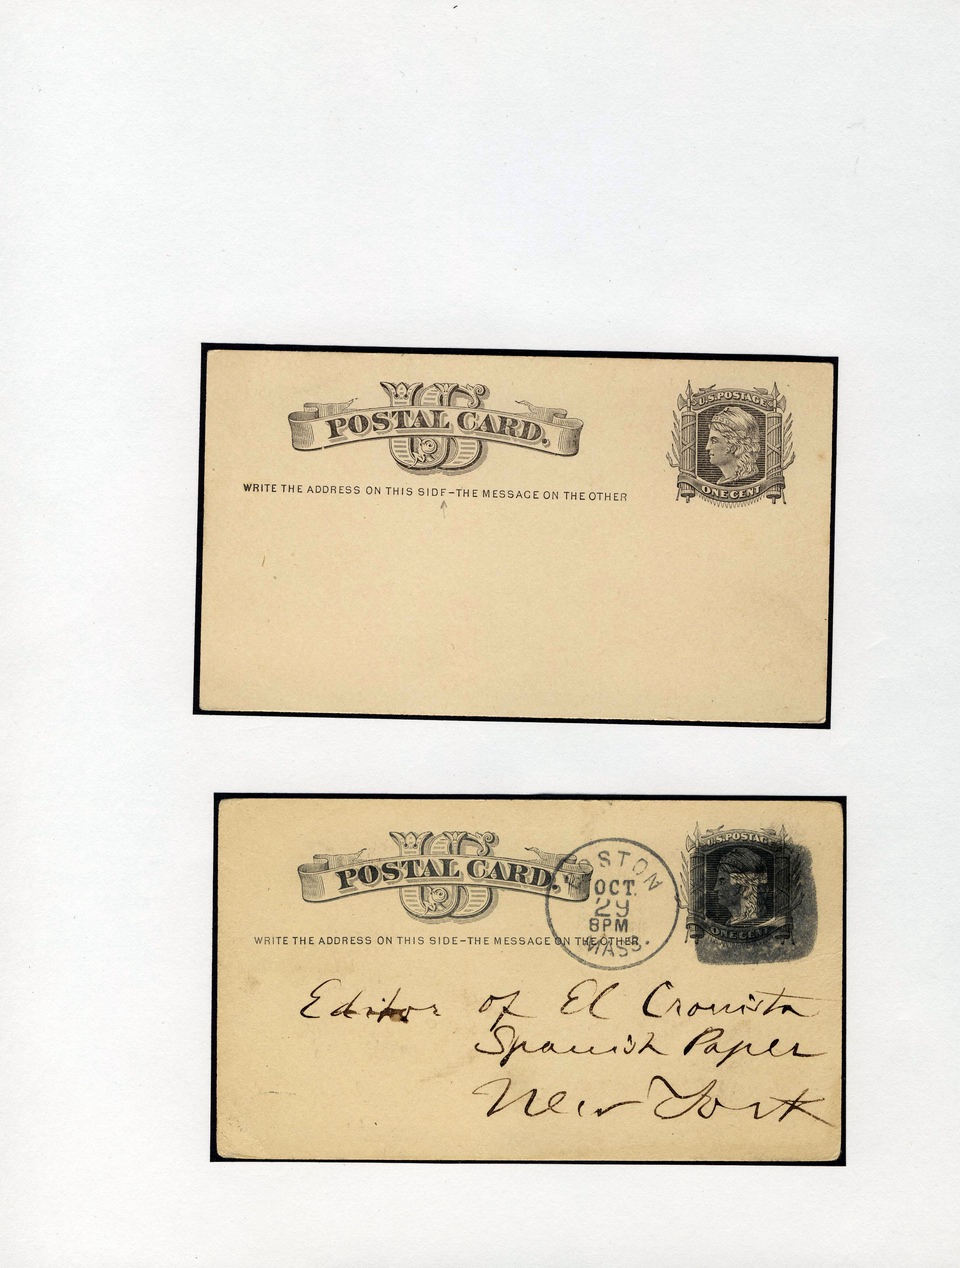 US
POSTAL CARD.
U.S. POSTAGE
ONE CENT
WRITE THE ADDRESS ON THIS SIDF–THE MESSAGE ON THE OTHER
US
POSTAL CARD.
U.S. POSTAGE
ONE CENT
BOSTON
OCT.
29
8PM
MASS.
WRITE THE ADDRESS ON THIS SIDE–THE MESSAGE ON THE OTHER
Editor of El Cronista
Spanish Paper
New York